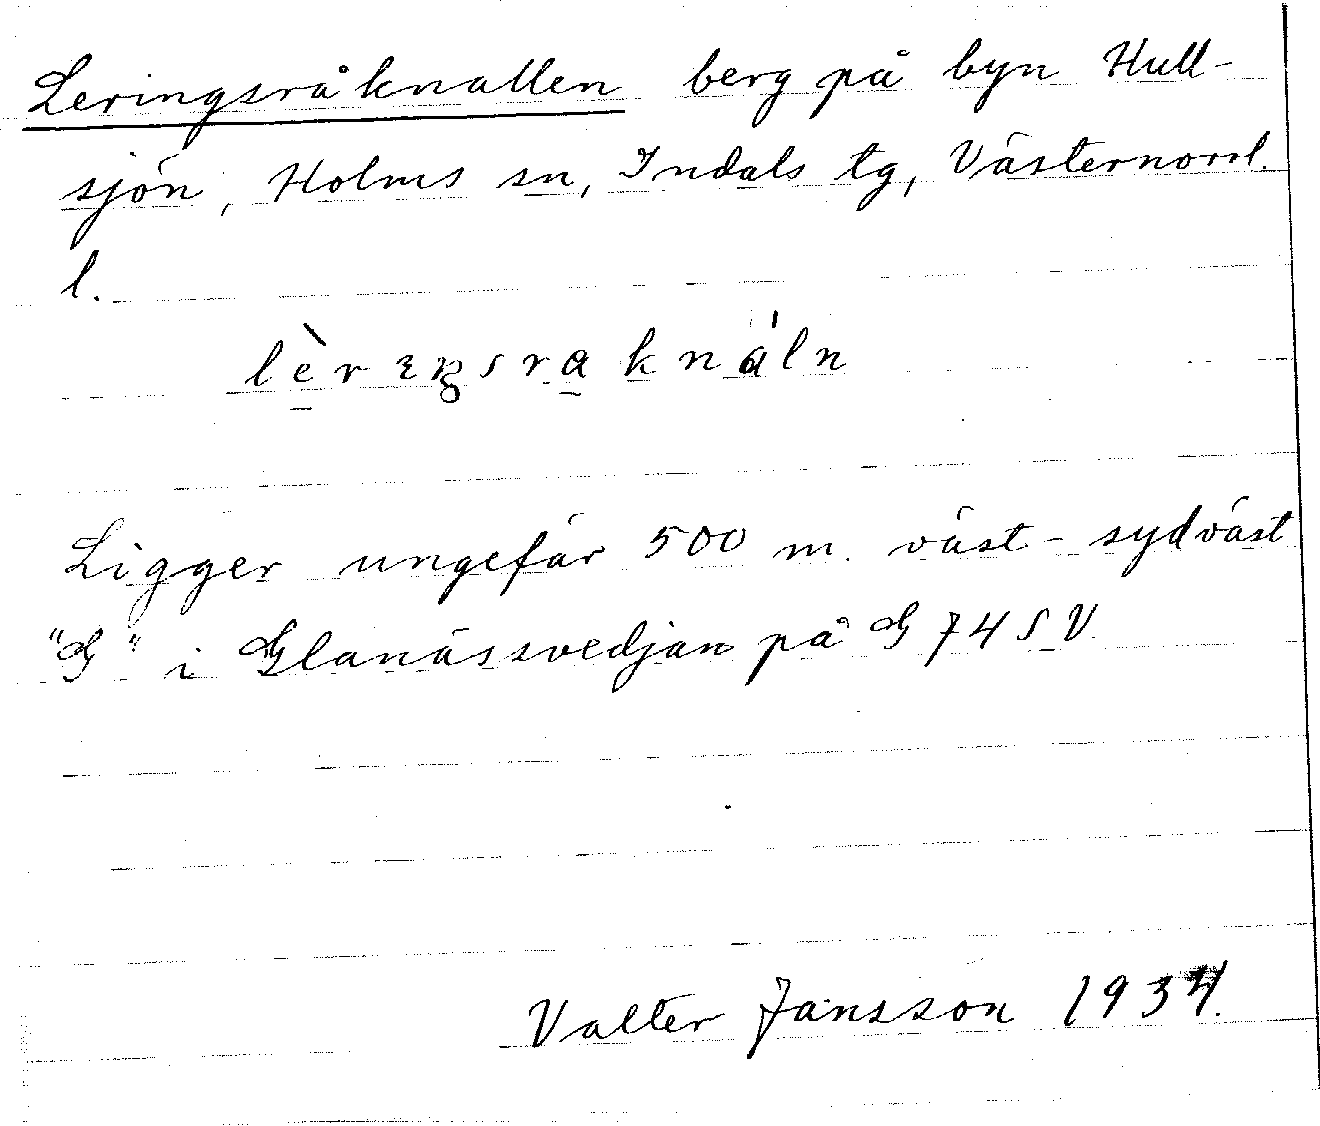 Leringsråknallen berg på byn Hull-
sjön, Holms sn, Indals tg, Västernorrl.
l.
Ligger ungefär 500 m. väst-sydväst
"G" i Glanässvedjan på G 74 SV
Valter Jansson 1934.